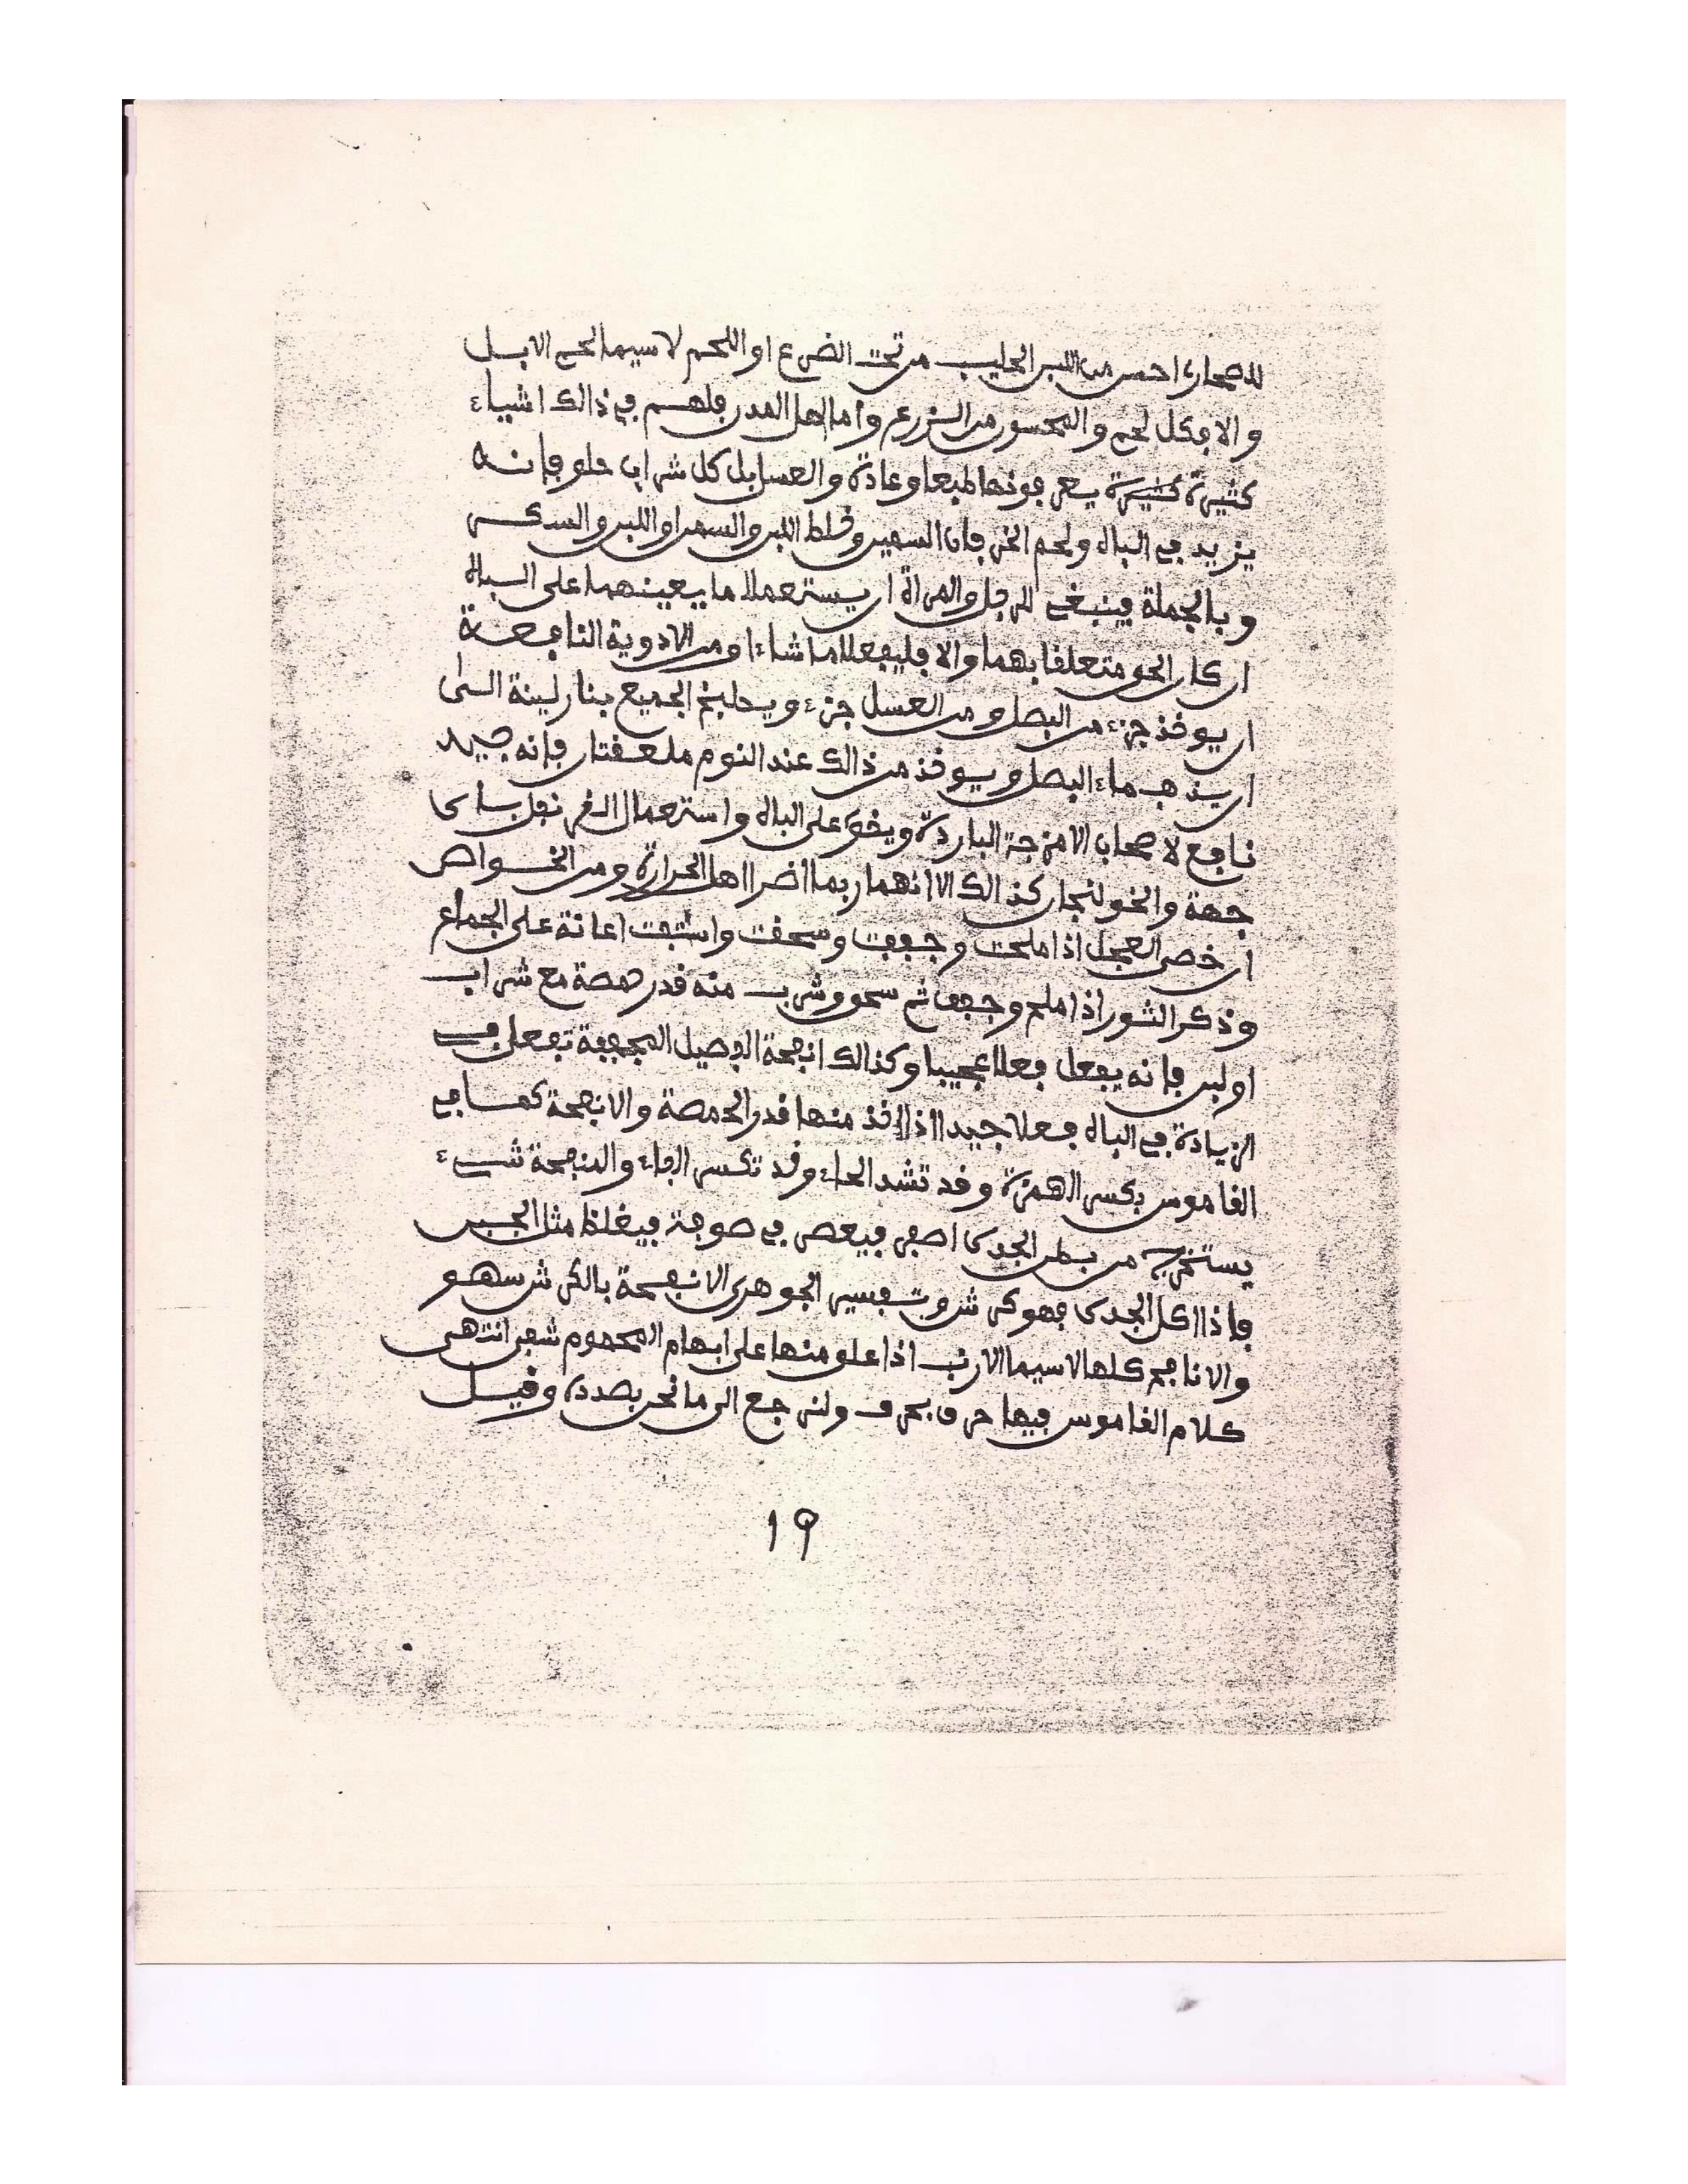 للصحارى احسن من اللبن الحليب من تحت الضرع او اللحم لا سيما لحم الابل
والا فكل لحم والمحسو من الزرع واما اهل المدن فلهم في ذالك اشياء
كثيرة كثيرة يعرفونها طبعا وعادة والعسل بل كل شراب حلو فإنه
يزيد في الباه ولحم الخرفان السمين وخلط اللبن والسمن او اللبن والسكر
وبالجملة فينبغي للرجل والمراة ان يستعملا ما يعينهما على الباه
ان كان الحق متعلقا بهما والا فليفعلا ما شاءا ومن الادوية النافعة
ان يوخذ جزء من البصل ومن العسل جزء ويطبخ الجميع بنار لينة الى
ان يذهب ماء البصل ويوخذ من ذالك عند النوم ملعقتان فإنه جيد
نافع لاصحاب الامزجة الباردة ويقوي على الباه واستعمال القرنفل باي
جهة والخولنجان كذالك الا انهما ربما اضرا اهل الحرارة ومن الخواص
ان خصى العجل اذا ملحت وجففت وسحقت واستفت اعانة على الجماع
وذكر الثور اذا ملح وجفف ثم سحق وشرب منه قدر حمصة مع شراب
او لبن فإنه يفعل فعلا عجيبا وكذالك انفحة الفصيل المجففة تفعل في
الزيادة في الباه فعلا جيدا اذا اخذ منها قدر الحمصة والانفحة كما في
القاموس بكسر الهمزة وقد تشد الحاء وقد تكسر الفاء والمنفحة شيء
يستخرج من بطن الجدي اصفر فيعصر في صوفة فيغلظ مثل الجبن
فإذا اكل الجدي فهو كرش وتفسير الجوهري الانفحة بالكرش سهو
والانافح كلها لا سيما الارنب اذا علق منها على ابهام المحموم شفي انتهى
كلام القاموس فيها حرف بحرف ولنرجع الى ما نحن بصدده وقيل
١٩